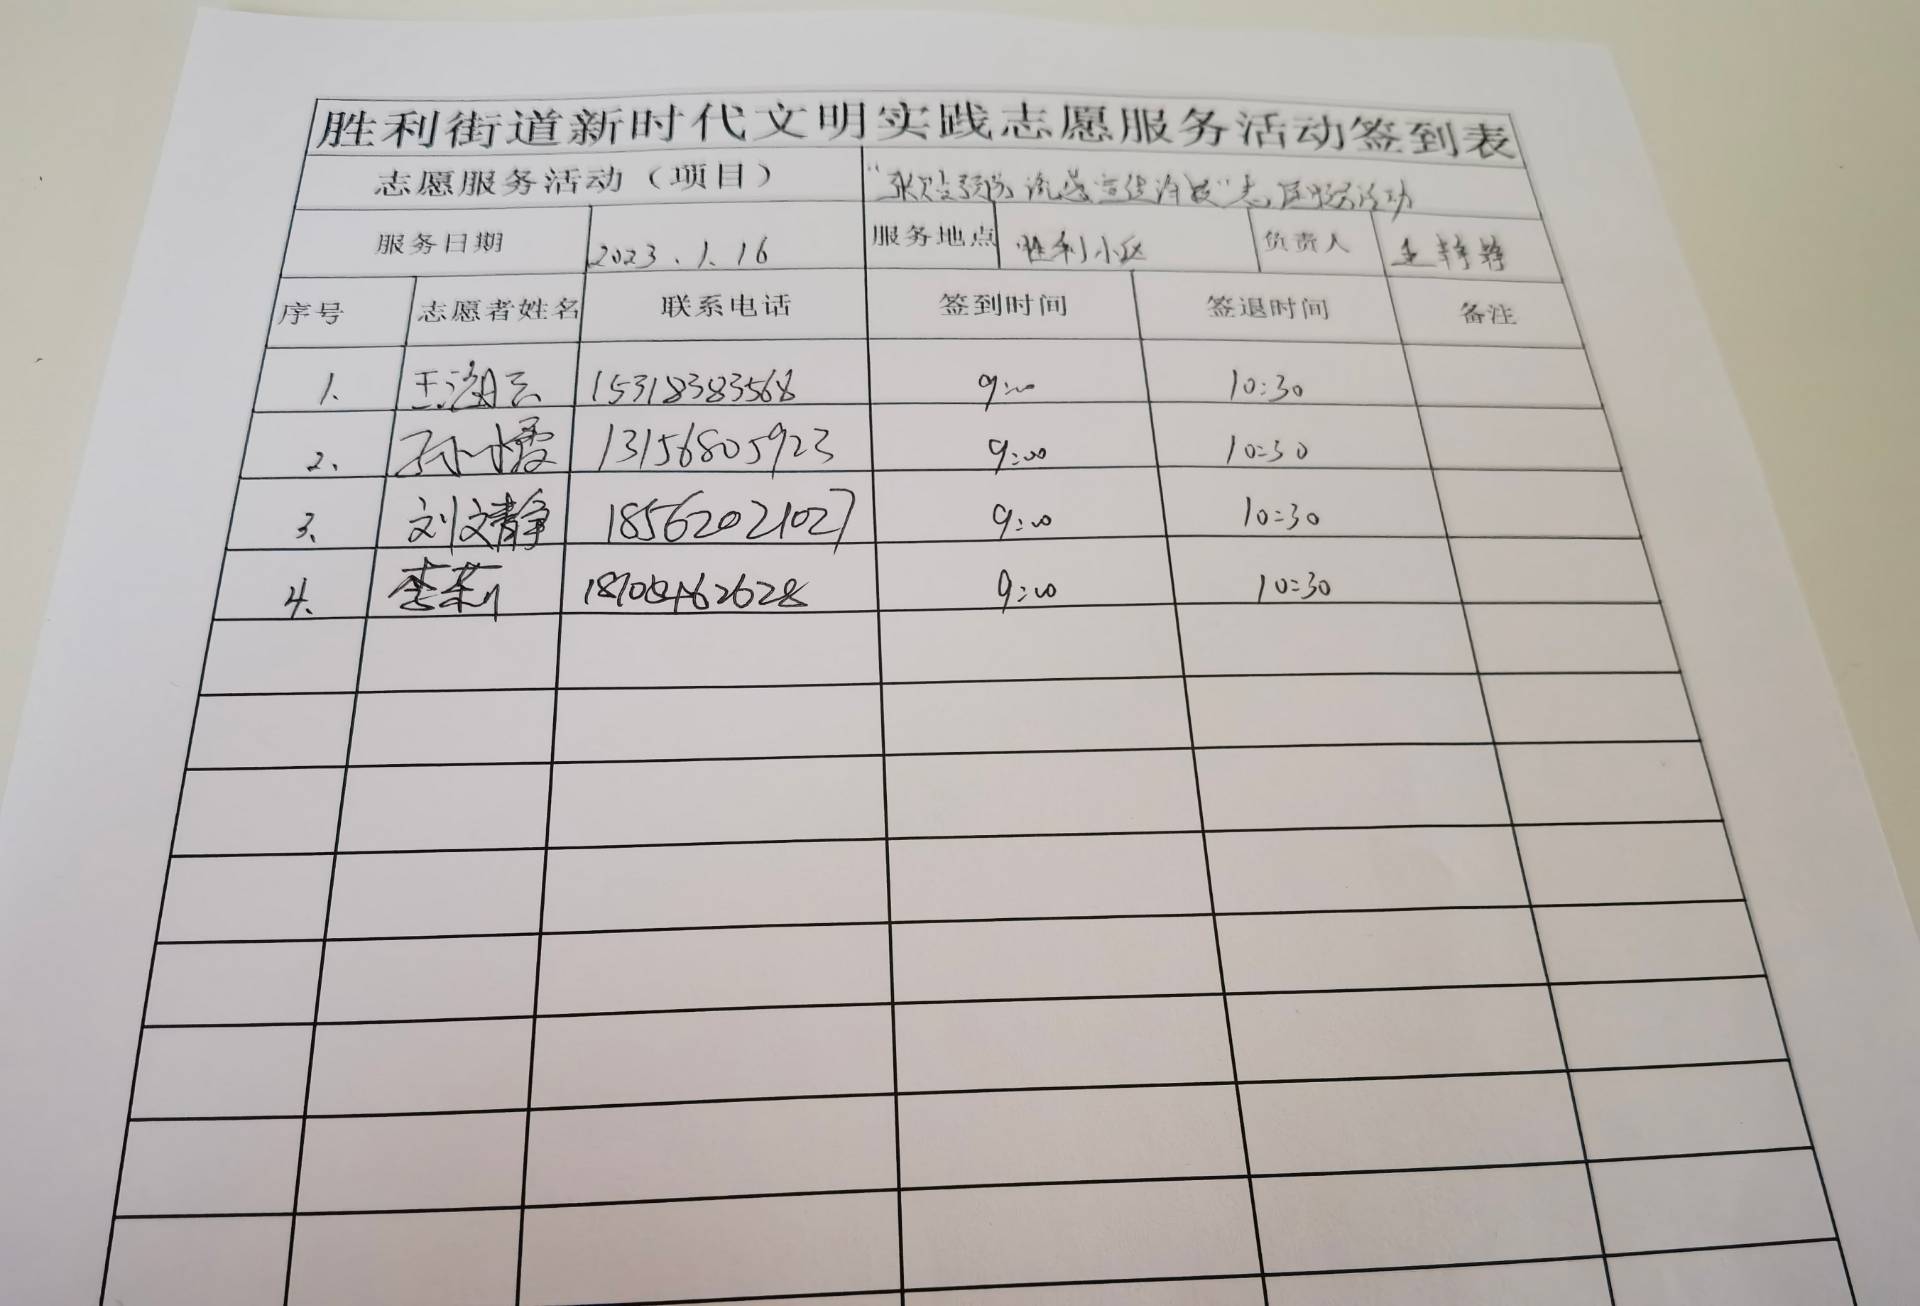 胜利街道新时代文明实践志愿服务活动签到表
志愿服务活动（项目） "张贴预防流感宣传海报"志愿服务活动
服务日期 2023.1.16 服务地点 胜利小区 负责人 王静静
序号 志愿者姓名 联系电话 签到时间 签退时间 备注
1. 王 15318383568 9:00 10:30
2、 孙 13156805923 9:00 10:30
3、 刘文静 18562021027 9:00 10:30
4. 李莉 9:00 10:30